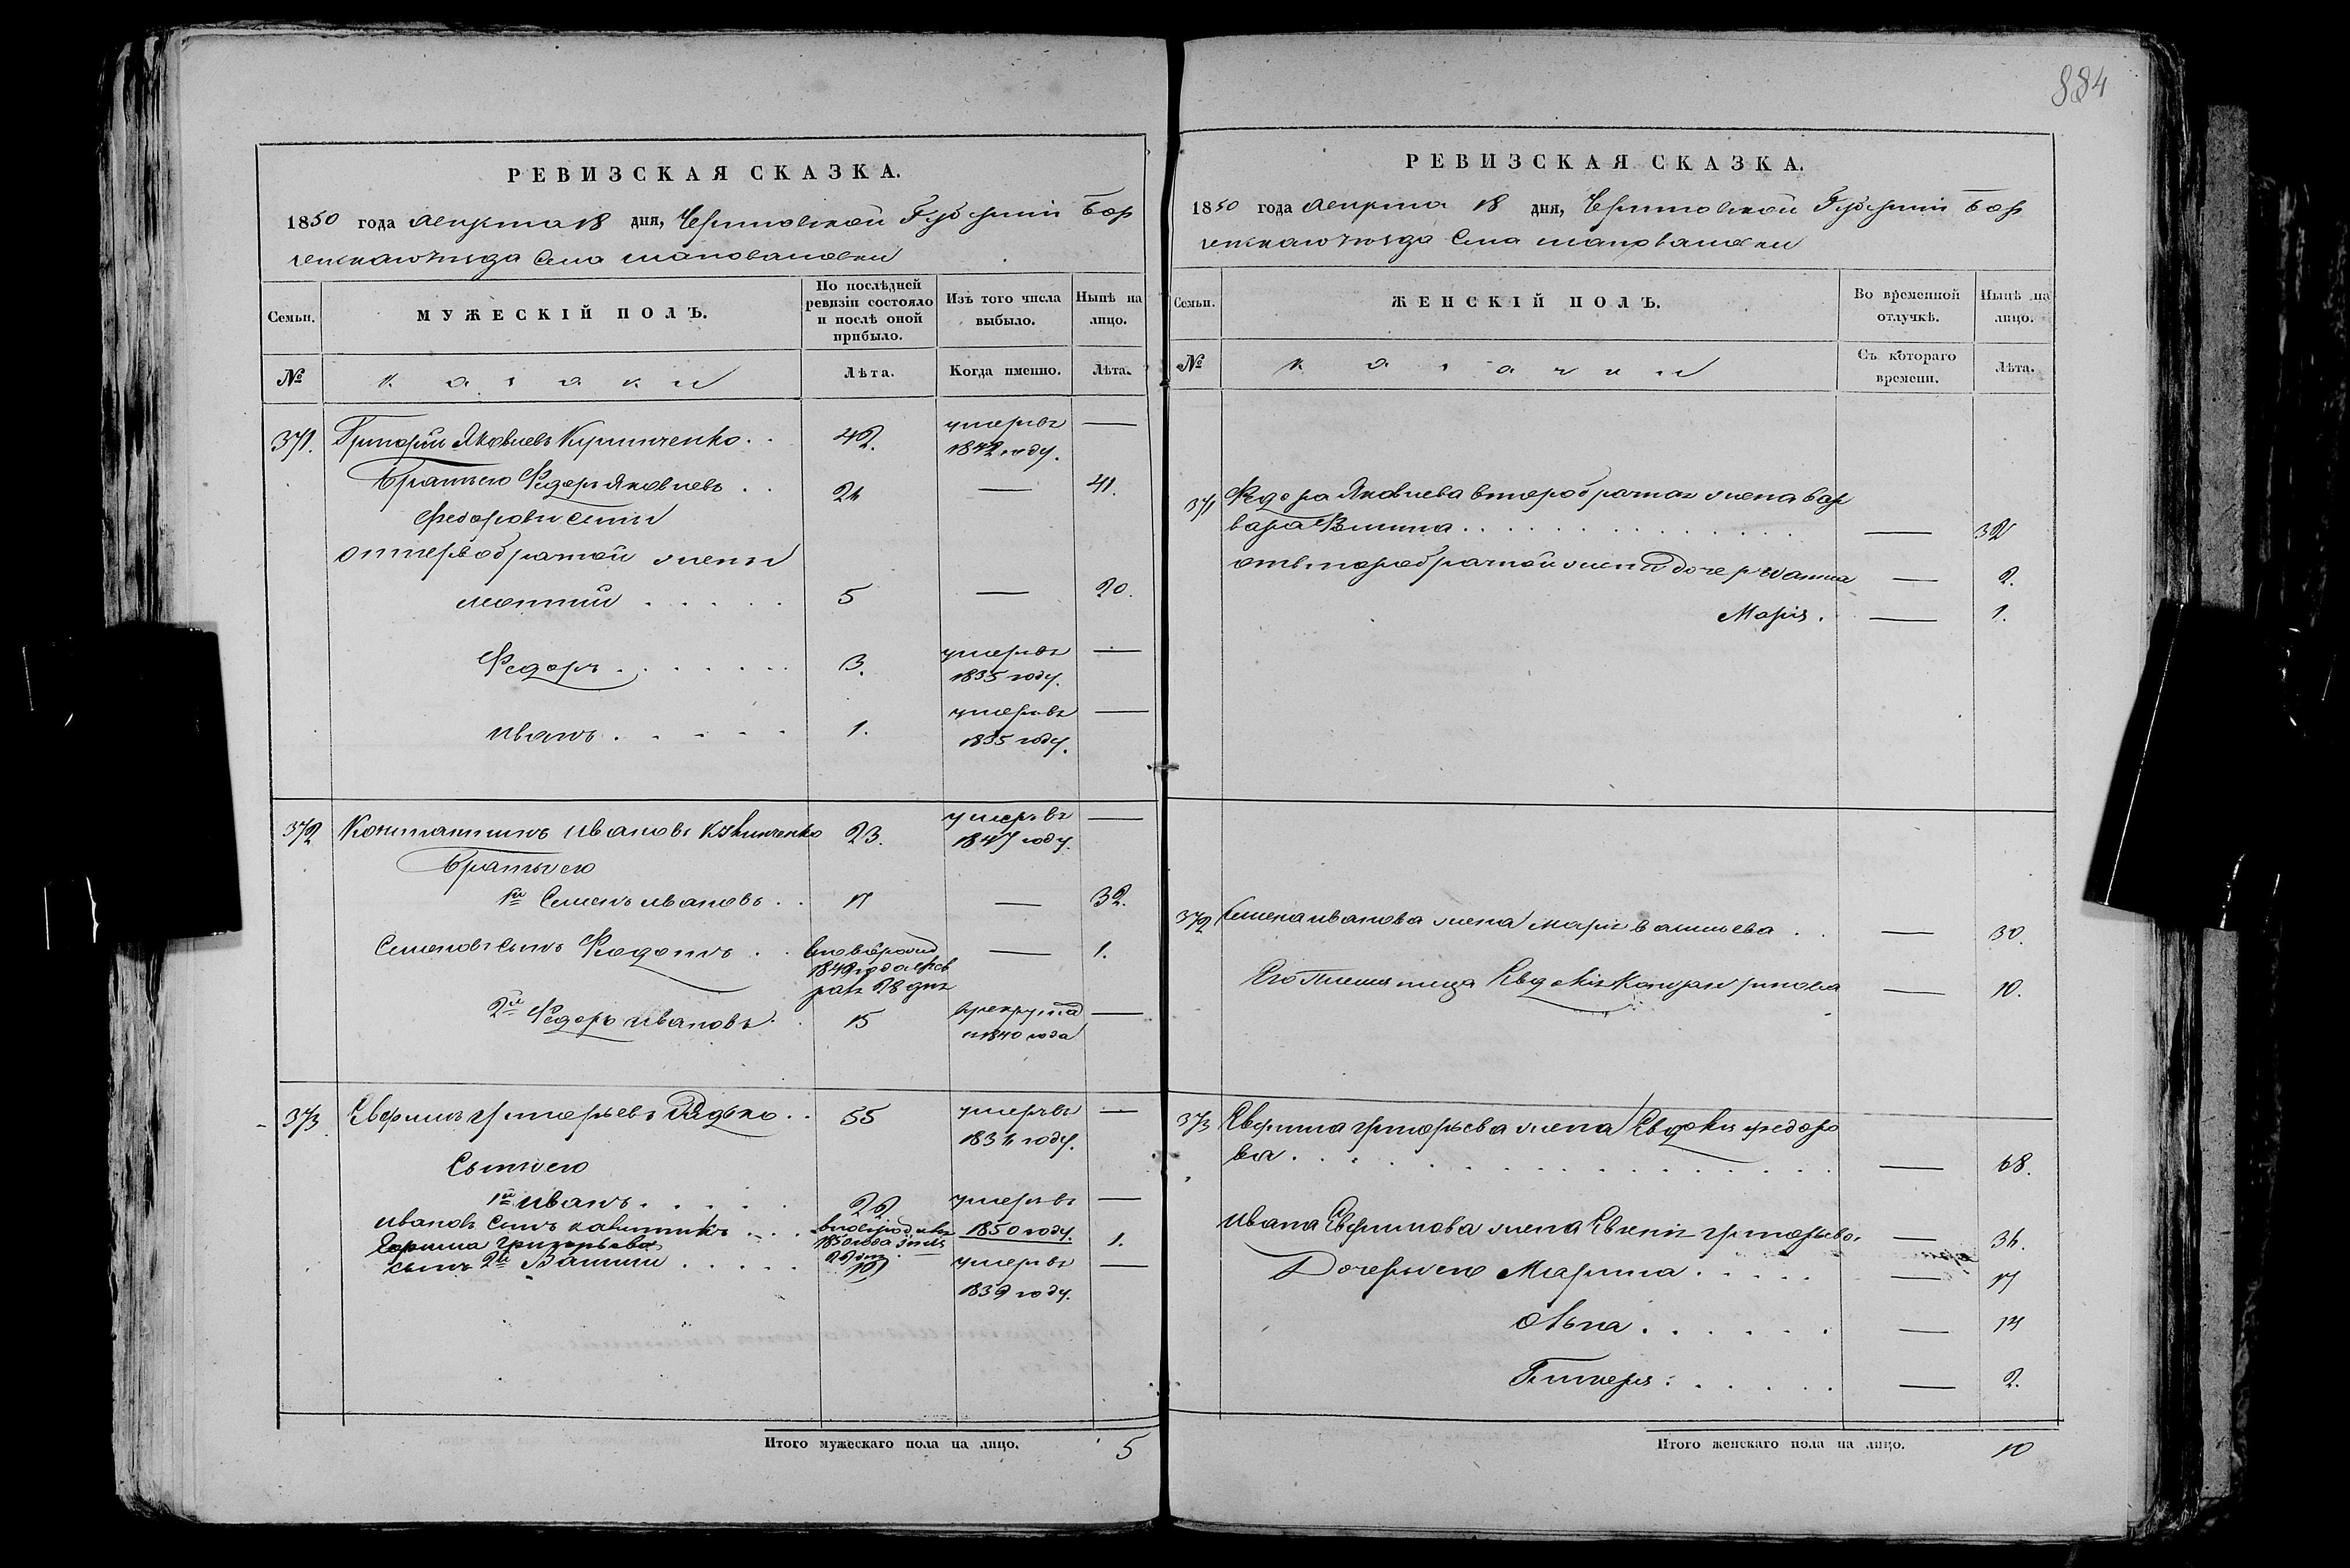 884
РЕВИЗСКАЯ СКАЗКА.
1850 года августа 18 дня, Черниговской Губернии Бор
зенскаго уезда села шаповаловки
Семьи.
МУЖЕСКІЙ ПОЛЪ.
По послѣдней
ревизіи состояло
и послѣ оной
прибыло.
Изъ того числа
выбыло.
Нынѣ на
лицо.
№
казаки
Лѣта.
Когда именно.
Лѣта.
371. Григорий Яковлевъ . . 42. умеръвъ —
1842 году.
братъего Федоръ Яковлевъ . . 26 — 41.
федоровы сыны
отпервобрачной жены
5 — 20.
Федоръ . . . . . . . 3. умеръвъ —
1835 году.
иванъ . . . . . 1. умеръвъ —
1835 году.
372 Константинъ ивановъ 23. умеръвъ —
1847 году.
братьего
1й Семенъ ивановъ . . 17 — 32.
Семеновъ сынъ Федотъ . . вновь рожд — 1.
1849 года фев
раля 28 дня
2й Федоръ ивановъ . . 15 врекруты —
с 1840 года
373 Евфимъ григорьевъ . . 55 умеръвъ —
1836 году.
Сыны его
1й иванъ . . . . . 26 умеръвъ —
1850 году.
ивановъ сынъ каленникъ . . . 1.
1850 года
Евфима григорьева
сынъ 2й Василий . . . . . 10 умеръвъ —
1839 году.
Итого мужескаго пола на лицо. 5
РЕВИЗСКАЯ СКАЗКА.
1850 года августа 18 дня, Черниговской Губернии Бор
зенскаго уезда села шаповаловки
Семьи.
ЖЕНСКІЙ ПОЛЪ.
Во временной
отлучкѣ.
Нынѣ на
лицо.
№
казачки
Съ котораго
времени.
Лѣта.
371 Федора Яковлева второбрачная жена вар
вара . . . . . — 32
отвторобрачной жены дочери анна — 2.
Марія . — 1.
372 Семена иванова жена марья васильева . . — 30.
Его племянница Евдокія — 10.
373 Евфима григорьева жена Евдокия федоро
ва . . . . . — 68.
ивана Евфимова жена Евгенія григорьева. — 36.
Дочери его Марина . . . . — 17
. . . . . . — 14
Гликерія . . . . . — 2.
Итого женскаго пола на лицо. 10